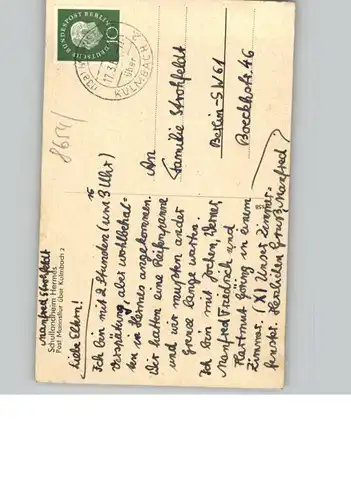 Manfred Strohfeldt
Schullandheim Hermes
Post Marienweiher über Kulmbach 2
Liebe Eltern! 15
Ich bin mit 2 Stunden (um 3 Uhr)
Verspätung, aber wohlbehal-
ten in Hermes angekommen.
Wir hatten eine Reifenpanne
und wir mußten an der
Grenze lange warten.
Ich bin mit Jochen, Werner,
Manfred Friedrich und
Hartmut Göring in einem
Zimmer. (X) Unser Zimmer-
fenster. Herzlichen Gruß Manfred
DEUTSCHE BUNDESPOST BERLIN
10
über
KULMBACH 2
8654/
An
Familie Strohfeldt
Berlin-SW61
Boeckhstr. 46